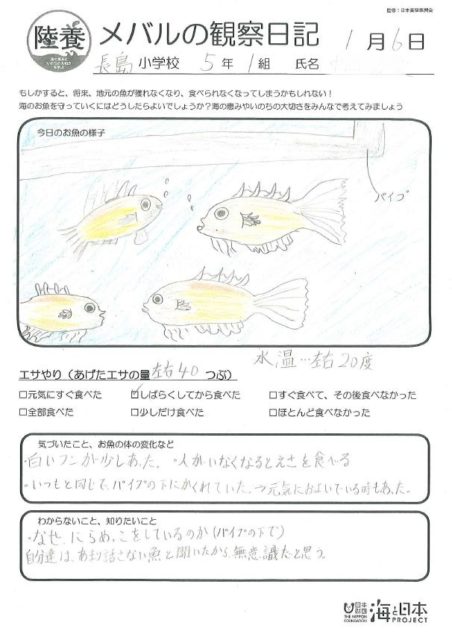 監修：日本養殖振興会
陸養
メバルの観察日記
1月6日
長島小学校 5年1組 氏名
もしかすると、将来、地元の魚が獲れなくなり、食べられなくなってしまうかもしれない！
海のお魚を守っていくにはどうしたらよいでしょうか？海の恵みやいのちの大切さをみんなで考えてみましょう
今日のお魚の様子
パイプ
水温…左右20度
エサやり（あげたエサの量 左右40 つぶ）
□元気にすぐ食べた ☑しばらくしてから食べた □すぐ食べて、その後食べなかった
□全部食べた □少しだけ食べた □ほとんど食べなかった
気づいたこと、お魚の体の変化など
・白いフンが少しあった。・人がいなくなるとえさを食べる
・いつもと同じで、パイプの下にかくれていた。→元気におよいでいる時もあった。
わからないこと、知りたいこと
・なぜ、にらめっこをしているのか（パイプの下で）
自分達は、あまり話さない魚と聞いたから、無意識だと思う。
日本財団
THE NIPPON FOUNDATION
海と日本
PROJECT